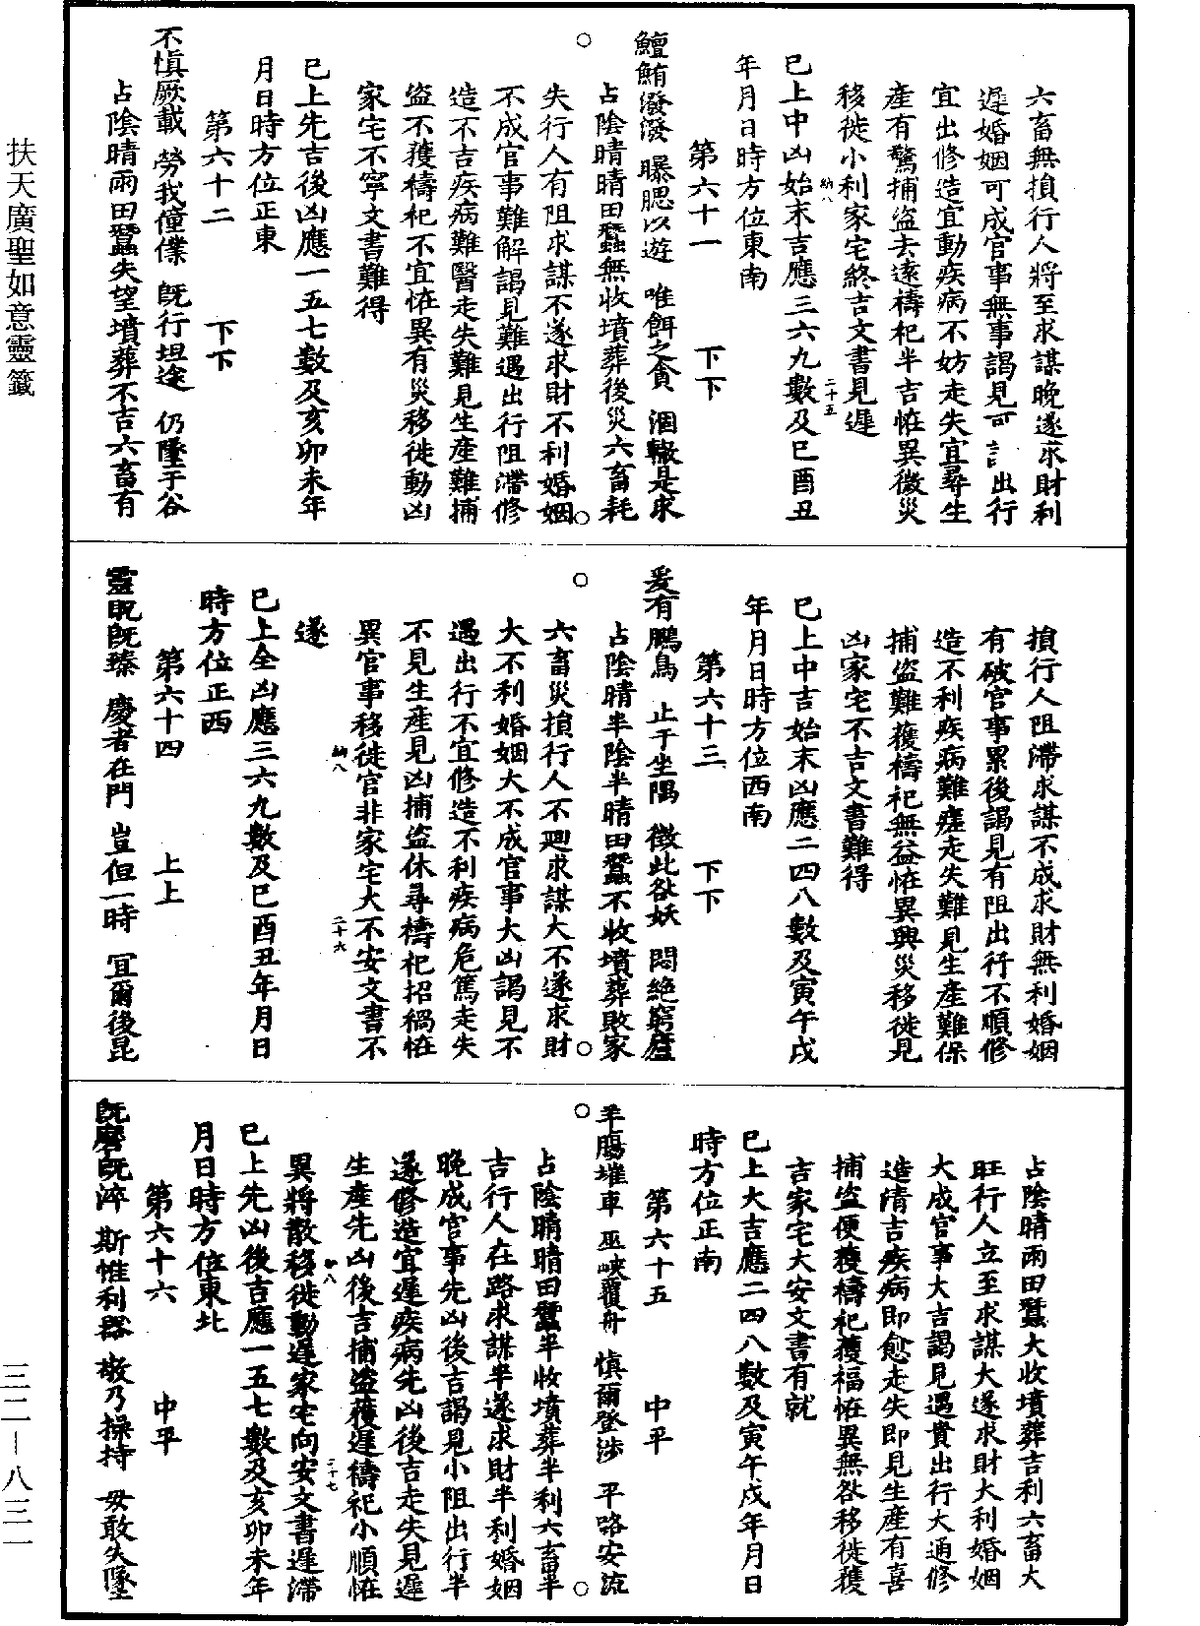 六畜無損行人將至求謀晚遂求財利
遲婚姻可成官事無事謁見可 出行
宜出修造宜動疾病不妨走失宜尋生
產有驚捕盜去遠禱祀半吉恠異微災
移徙小利家宅終吉文書見遲
納八
二十五
已上中凶始末吉應三六九數及巳酉丑
年月日時方位東南
第六十一 下下
鱣鮪潑潑 曝腮以遊 唯餌之貪 涸轍是求
占陰晴晴田蠶無收墳葬後災六畜耗
失行人有阻求謀不遂求財不利婚姻
不成官事難解謁見難遇出行阻滯修
造不吉疾病難醫走失難見生產難捕
盜不獲禱祀不宜恠異有災移徙動凶
家宅不寧文書難得
已上先吉後凶應一五七數及亥卯未年
月日時方位正東
第六十二 下下
不慎厥載 勞我僮僕 既行坦途 仍墜于谷
占陰晴雨田蠶失望墳葬不吉六畜有
損行人阻滯求謀不成求財無利婚姻
有破官事累後謁見有阻出行不順修
造不利疾病難瘥走失難見生產難保
捕盜難獲禱祀無益恠異興災移徙見
凶家宅不吉文書難得
已上中吉始末凶應二四八數及寅午戌
年月日時方位西南
第六十三 下下
爰有鵩鳥 止于坐隅 徵此咎妖 悶絶窮廬
占陰晴半陰半晴田蠶不收墳葬敗家
六畜災損行人不廻求謀大不遂求財
大不利婚姻大不成官事大凶謁見不
遇出行不宜修造不利疾病危篤走失
不見生產見凶捕盜休尋禱祀招禍恠
異官事移徙官非家宅大不安文書不
納八
二十六
遂
已上全凶應三六九數及巳酉丑年月日
時方位正西
第六十四 上上
靈貺既臻 慶者在門 豈但一時 冝爾後昆
占陰晴雨田蠶大收墳葬吉利六畜大
旺行人立至求謀大遂求財大利婚姻
大成官事大吉謁見遇貴出行大通修
造清吉疾病即愈走失即見生產有喜
捕盜便獲禱祀獲福恠異無咎移徙獲
吉家宅大安文書有就
已上大吉應二四八數及寅午戌年月日
時方位正南
第六十五 中平
羊腸摧車 巫峽覆舟 慎爾登涉 平咯安流
占陰晴晴田蠶半收墳葬半利六畜半
吉行人在路求謀半遂求財半利婚姻
晚成官事先凶後吉謁見小阻出行半
遂修造宜遲疾病先凶後吉走失見遲
生產先凶後吉捕盜獲遲禱祀小順恠
異將散移徙動遲家宅向安文書遲滯
納八
二十七
已上先凶後吉應一五七數及亥卯未年
月日時方位東北
第六十六 中平
既磨既淬 斯惟利器 敬乃操持 毋敢失墜
扶天廣聖如意靈籤
三二－八三一